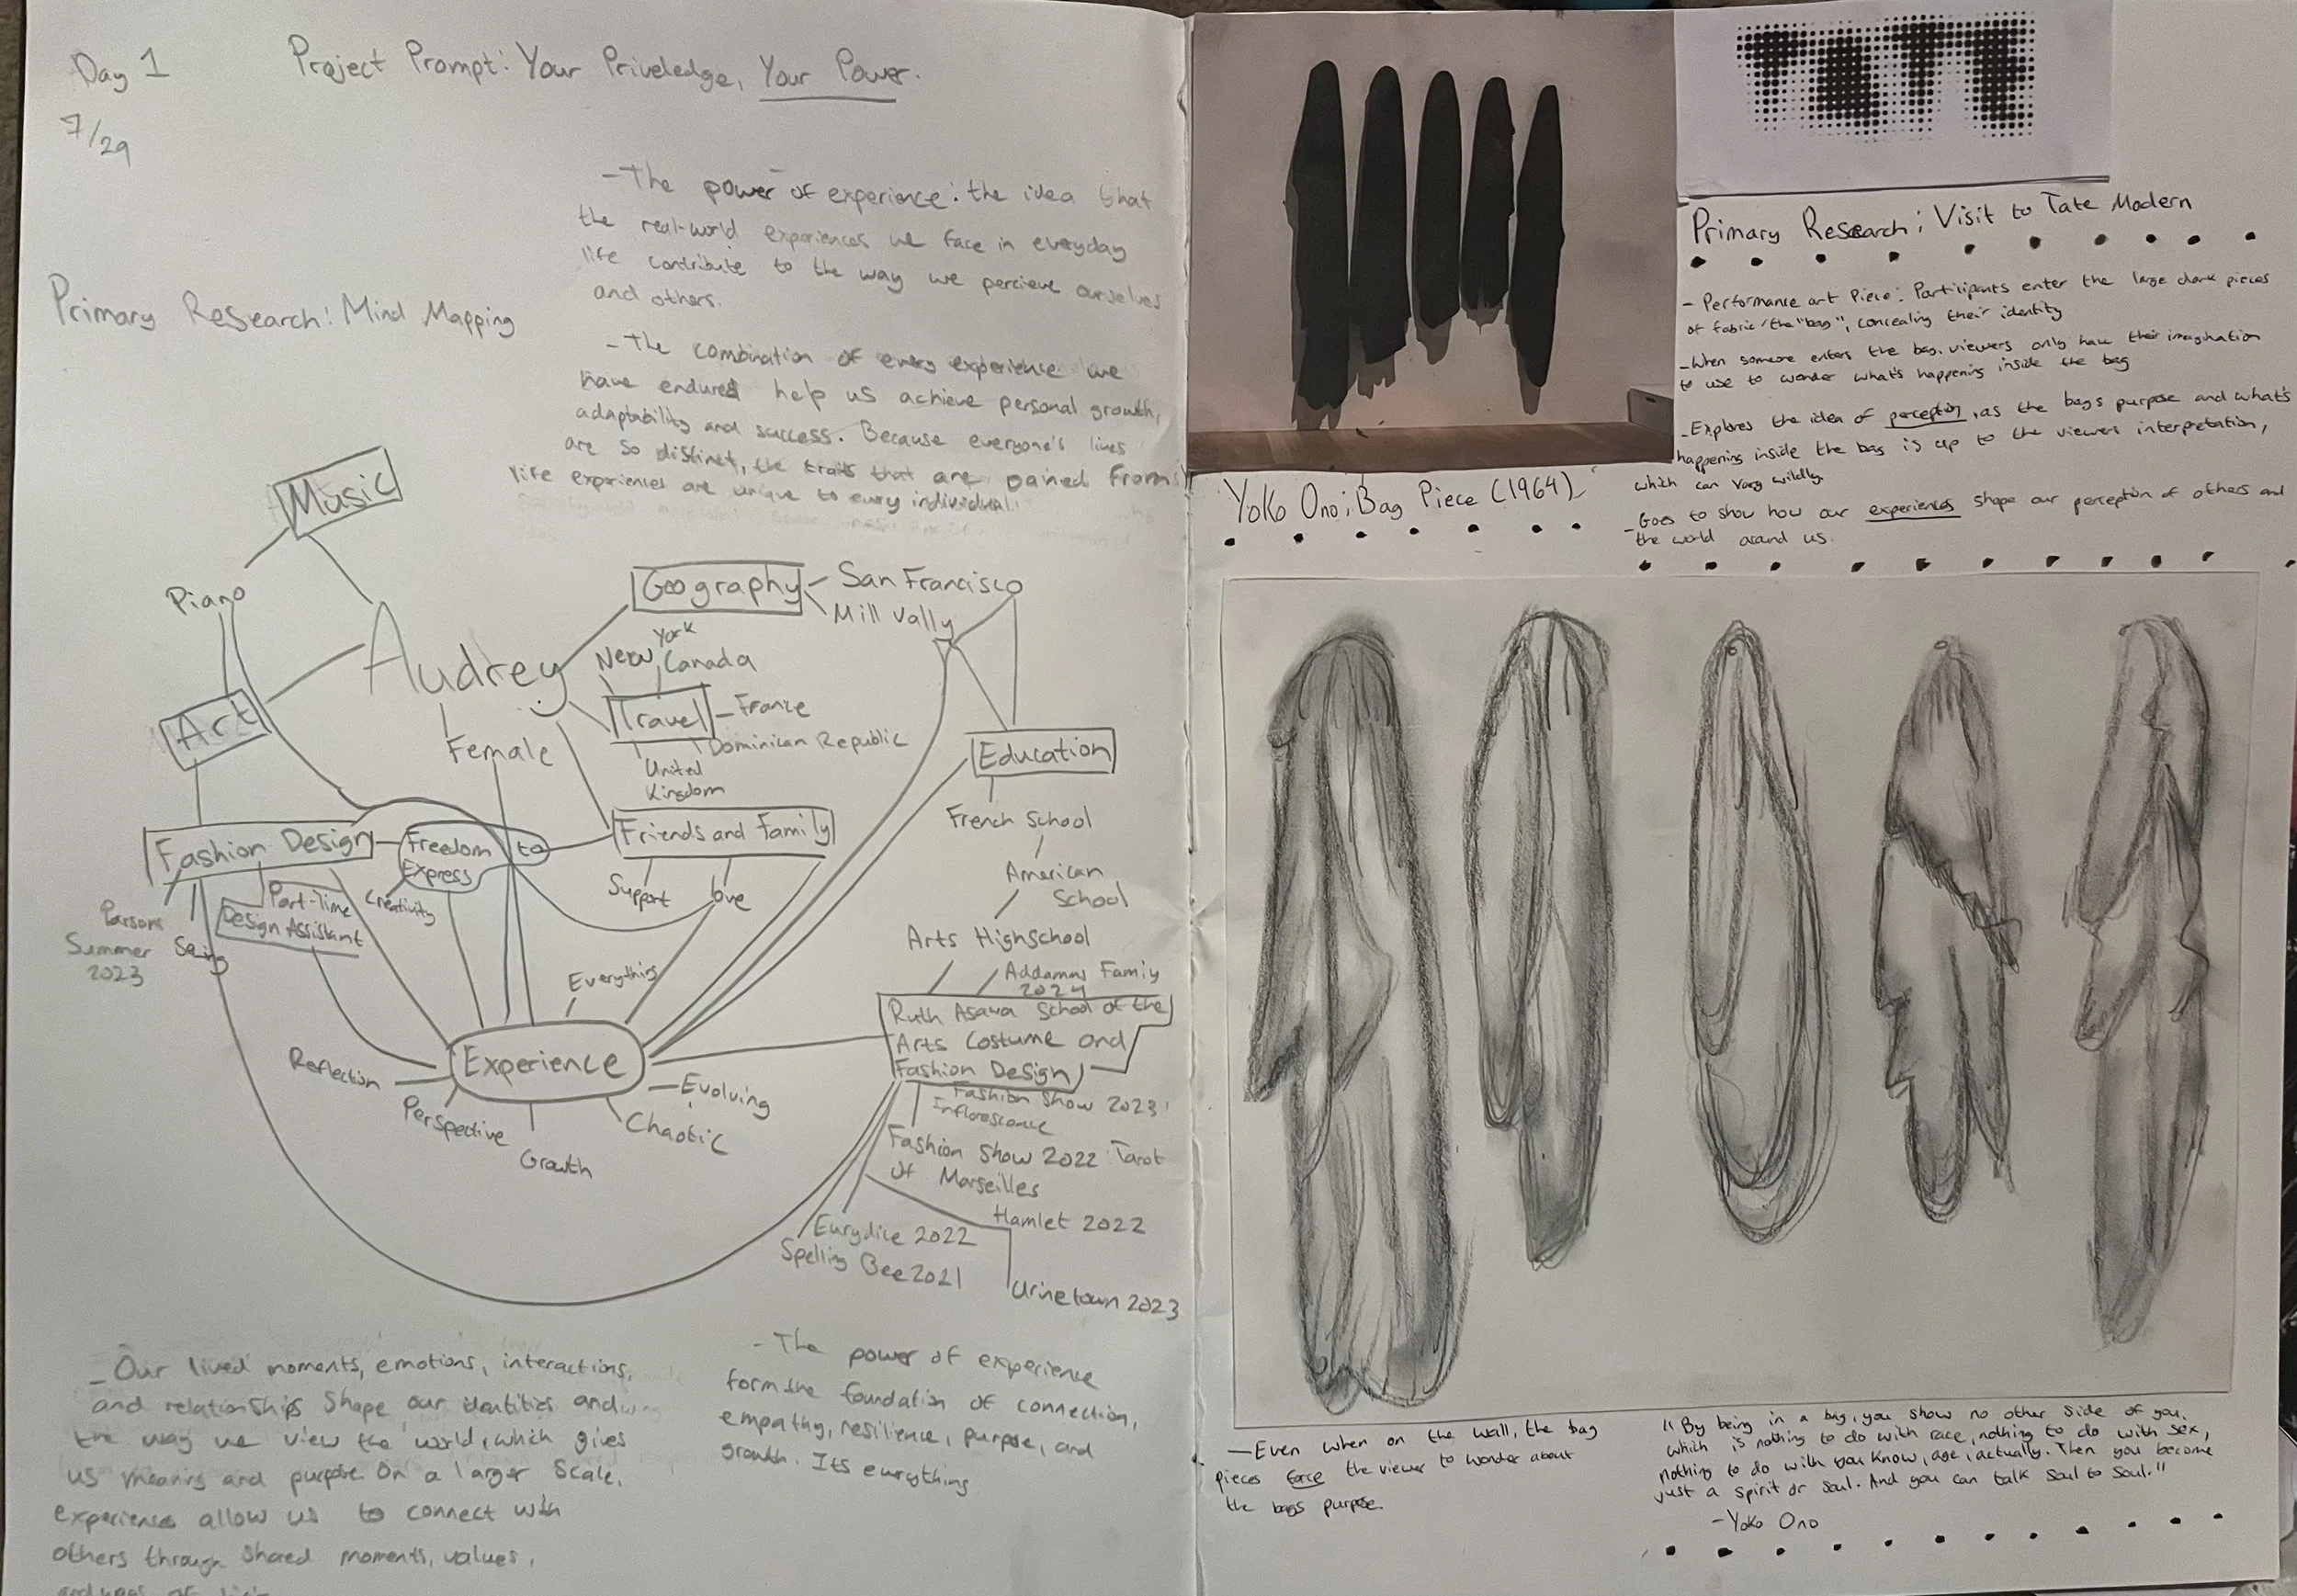 Day 1
7/29
Project Prompt: Your Priveledge, Your Power.
-The power of experience: the idea that
the real-world experiences we face in everyday
life contribute to the way we percieve ourselves
and others.
-The combination of every experience we
have endured help us achieve personal growth,
adaptability and success. Because everyone's lives
are so distinct, the traits that are gained from
life experiences are unique to every individual.
Primary Research: Mind Mapping
Music
Piano
Audrey
Art
Female
Geography
San Francisco
Mill Vally
New York
Canada
Travel
France
Dominican Republic
United
Kingdom
Education
French School
American
School
Arts Highschool
Addamns Famiy
2024
Ruth Asawa School of the
Arts Costume and
Fashion Design
Fashion Show 2023:
Inflorescence
Fashion Show 2022: Tarot
Of Marseilles
Hamlet 2022
Eurydice 2022
Spelling Bee 2021
Urinetown 2023
Friends and Family
Support
love
Freedom to
Express
Creativity
Fashion Design
Parsons
Summer
2023
Part-Time
Design Assistant
Everything
Experience
Reflection
Perspective
Growth
Chaotic
Evolving
-Our lived moments, emotions, interactions,
and relationships shape our identities and
the way we view the world, which gives
us meaning and purpose. On a larger scale,
experiences allow us to connect with
others through shared moments, values,
-The power of experience
form the foundation of connection,
empathy, resilience, purpose, and
growth. Its everything.
TATE
Primary Research: Visit to Tate Modern
- Performance art Piece: Participants enter the large dark pieces
of fabric/the "bag", concealing their identity
-When someone enters the bag, viewers only have their imagination
to use to wonder what's happening inside the bag
-Explores the idea of perception, as the bags purpose and what's
happening inside the bag is up to the viewers interpretation,
which can vary wildly.
-Goes to show how our experiences shape our perception of others and
the world around us.
Yoko Ono: Bag Piece (1964)
-Even when on the wall, the bag
pieces force the viewer to wonder about
the bags purpose.
"By being in a bag, you show no other side of you,
which is nothing to do with race, nothing to do with sex,
nothing to do with you know, age, actually. Then you become
just a spirit or soul. And you can talk soul to soul."
-Yoko Ono